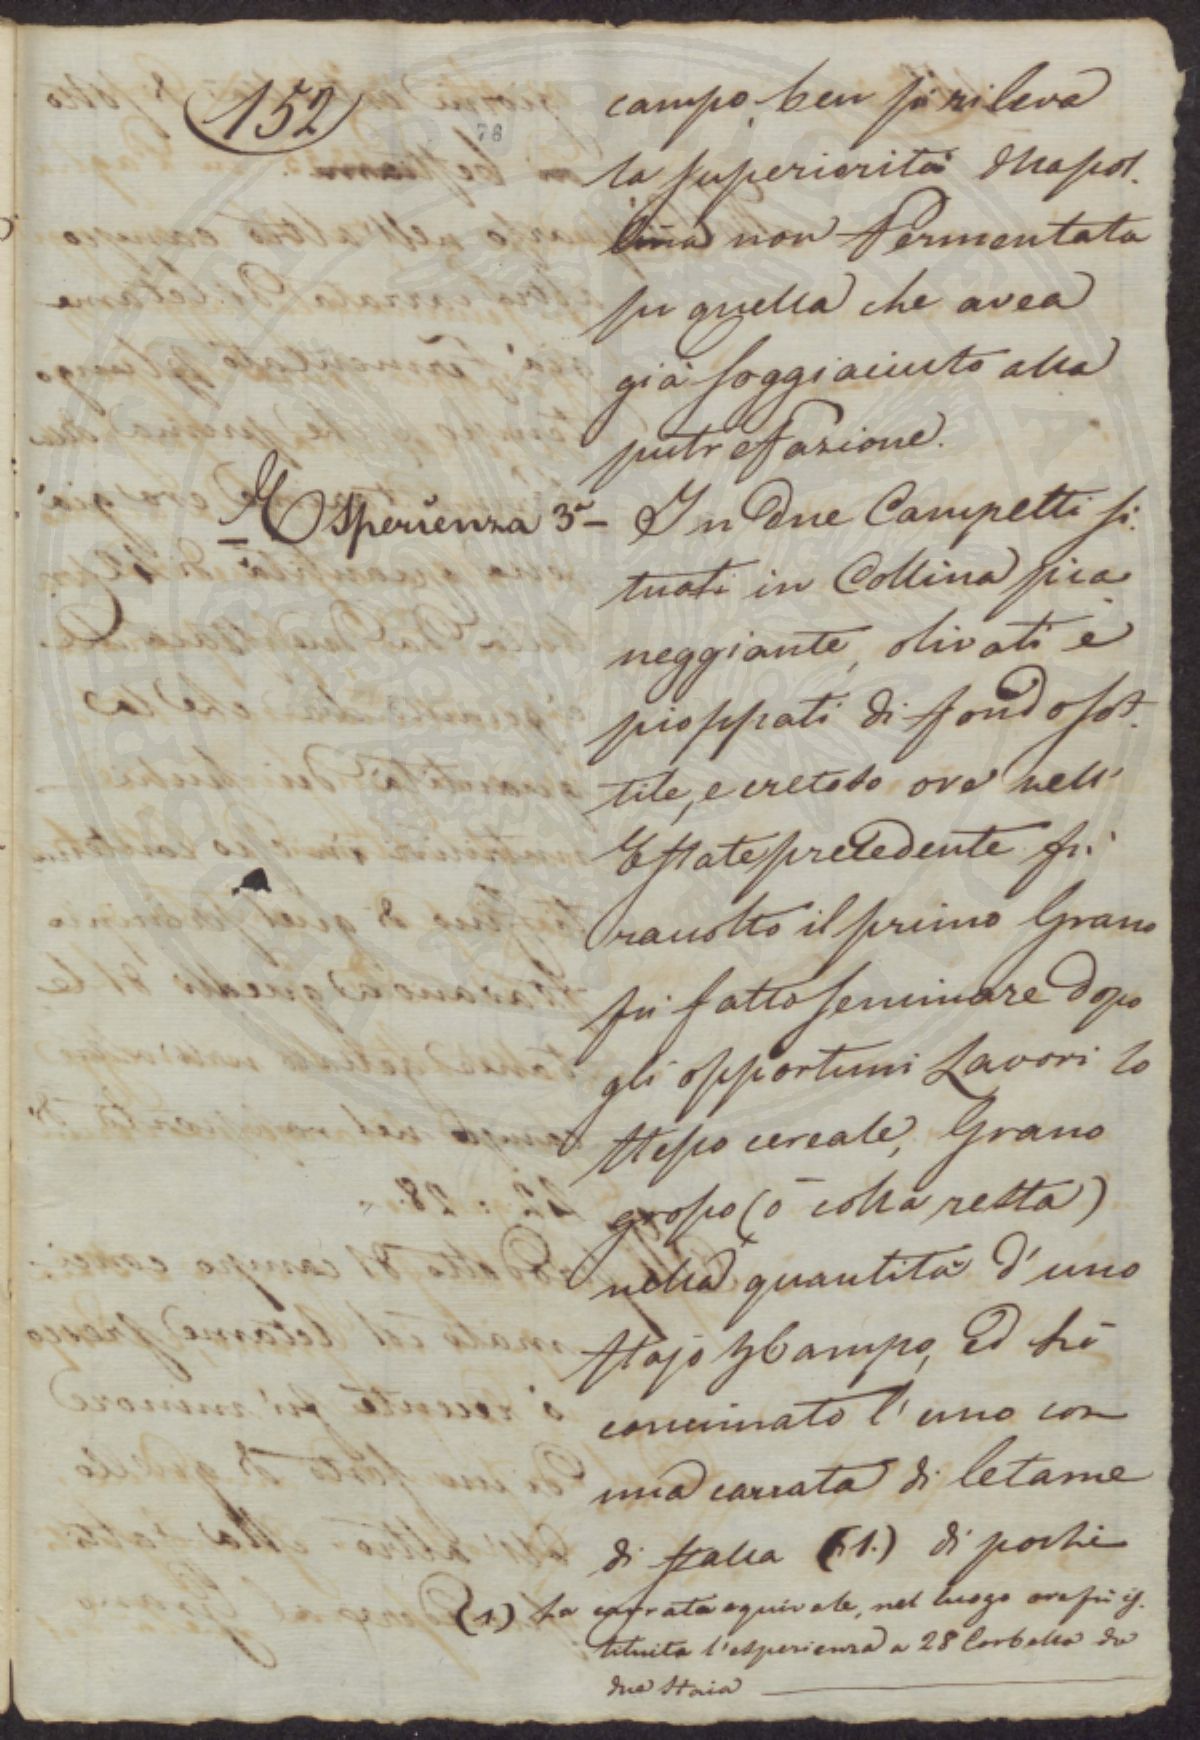 152
78
campo, ben si rileva
la superiorità della pol-
lina non fermentata
su quella che avea
già soggiaciuto alla
putrefazione.
Esperienza 3ª — In due Campetti si-
tuati in Collina pia
neggiante, olivati e
pioppati di fondo sot-
tile, e cretoso ove nell'
Estate precedente fù
racolto il primo Grano
fù fatto seminare dopo
gli opportuni Lavori lo
stesso cereale, Grano
grosso (ò colla resta)
nella quantità d'uno
stajo Campo, ed fù
concimato l'uno con
una carrata di letame
di stalla (1.) di pochi
(1) La carrata equivale, nel luogo ove fù is-
tituita l'esperienza a 28 Corbella da
due Staia